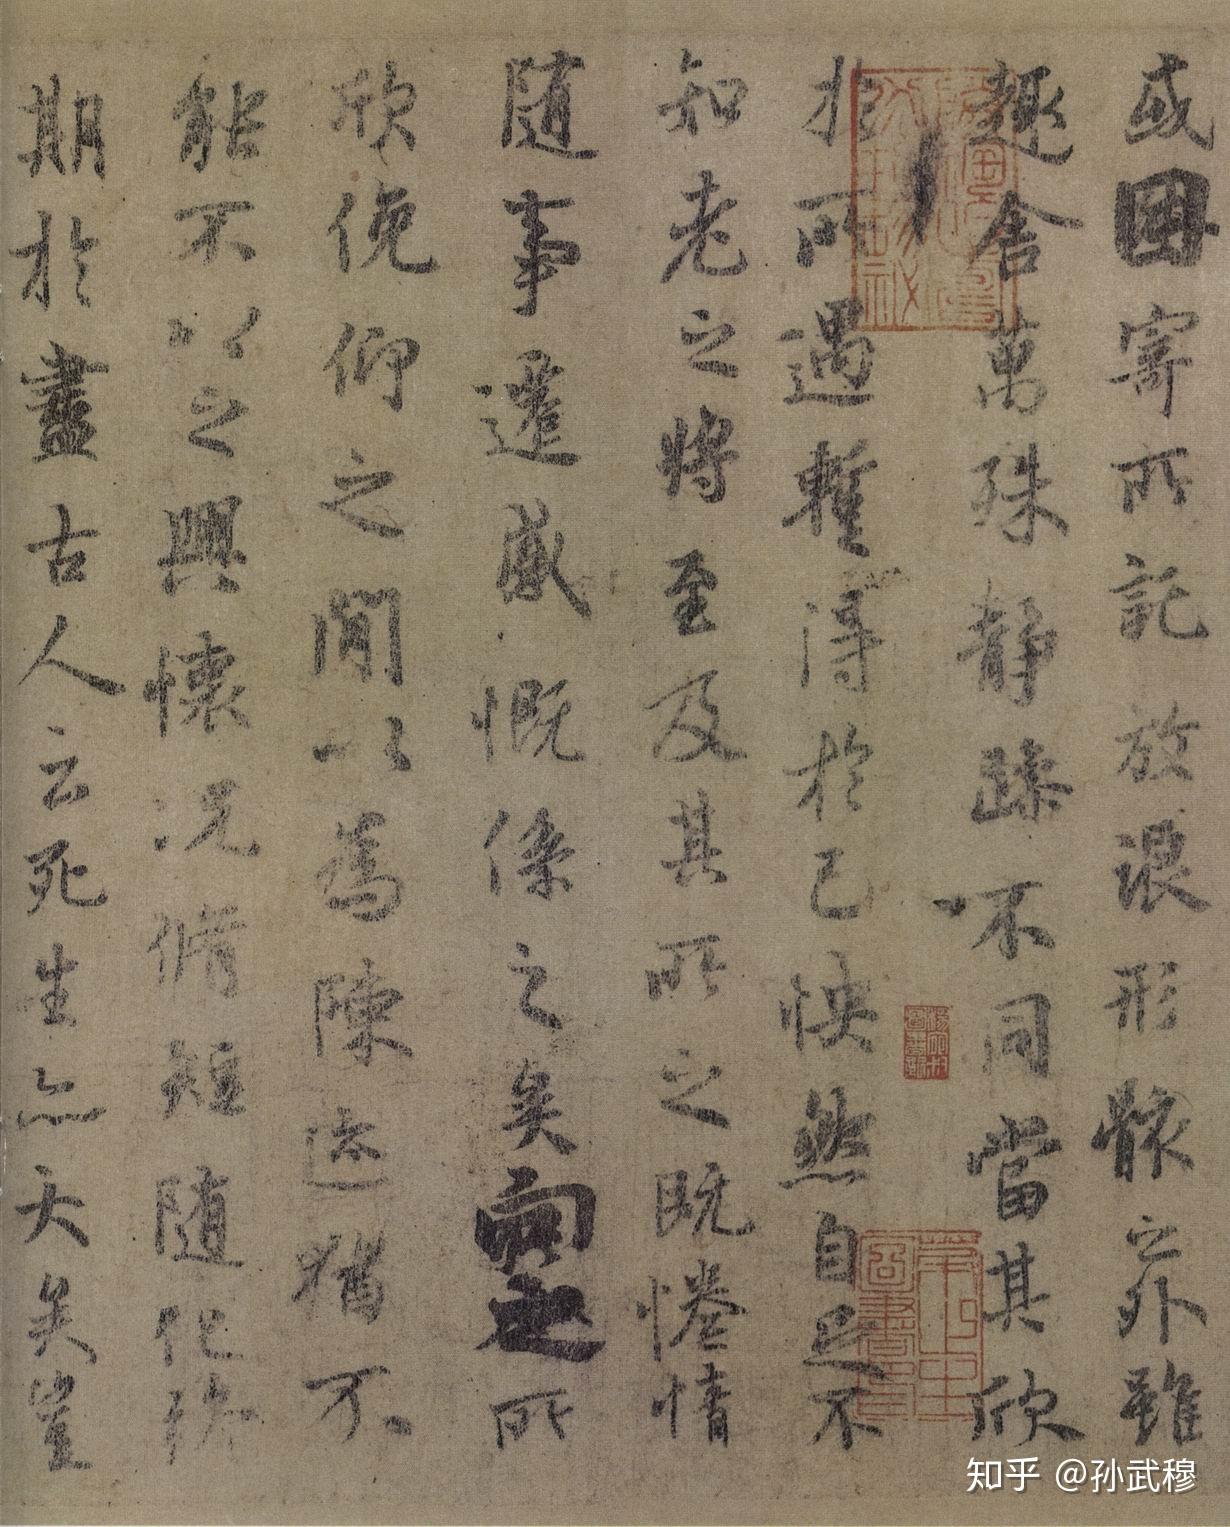 或因寄所託放浪形骸之外雖
趣舍萬殊静躁不同當其欣
於所遇暫得於己怏然自足不
知老之將至及其所之既惓情
随事遷感慨係之矣向之所
欣俛仰之閒以為陳迹猶不
能不以之興懷況脩短随化終
期於盡古人云死生亦大矣豈
知乎 @孙武穆